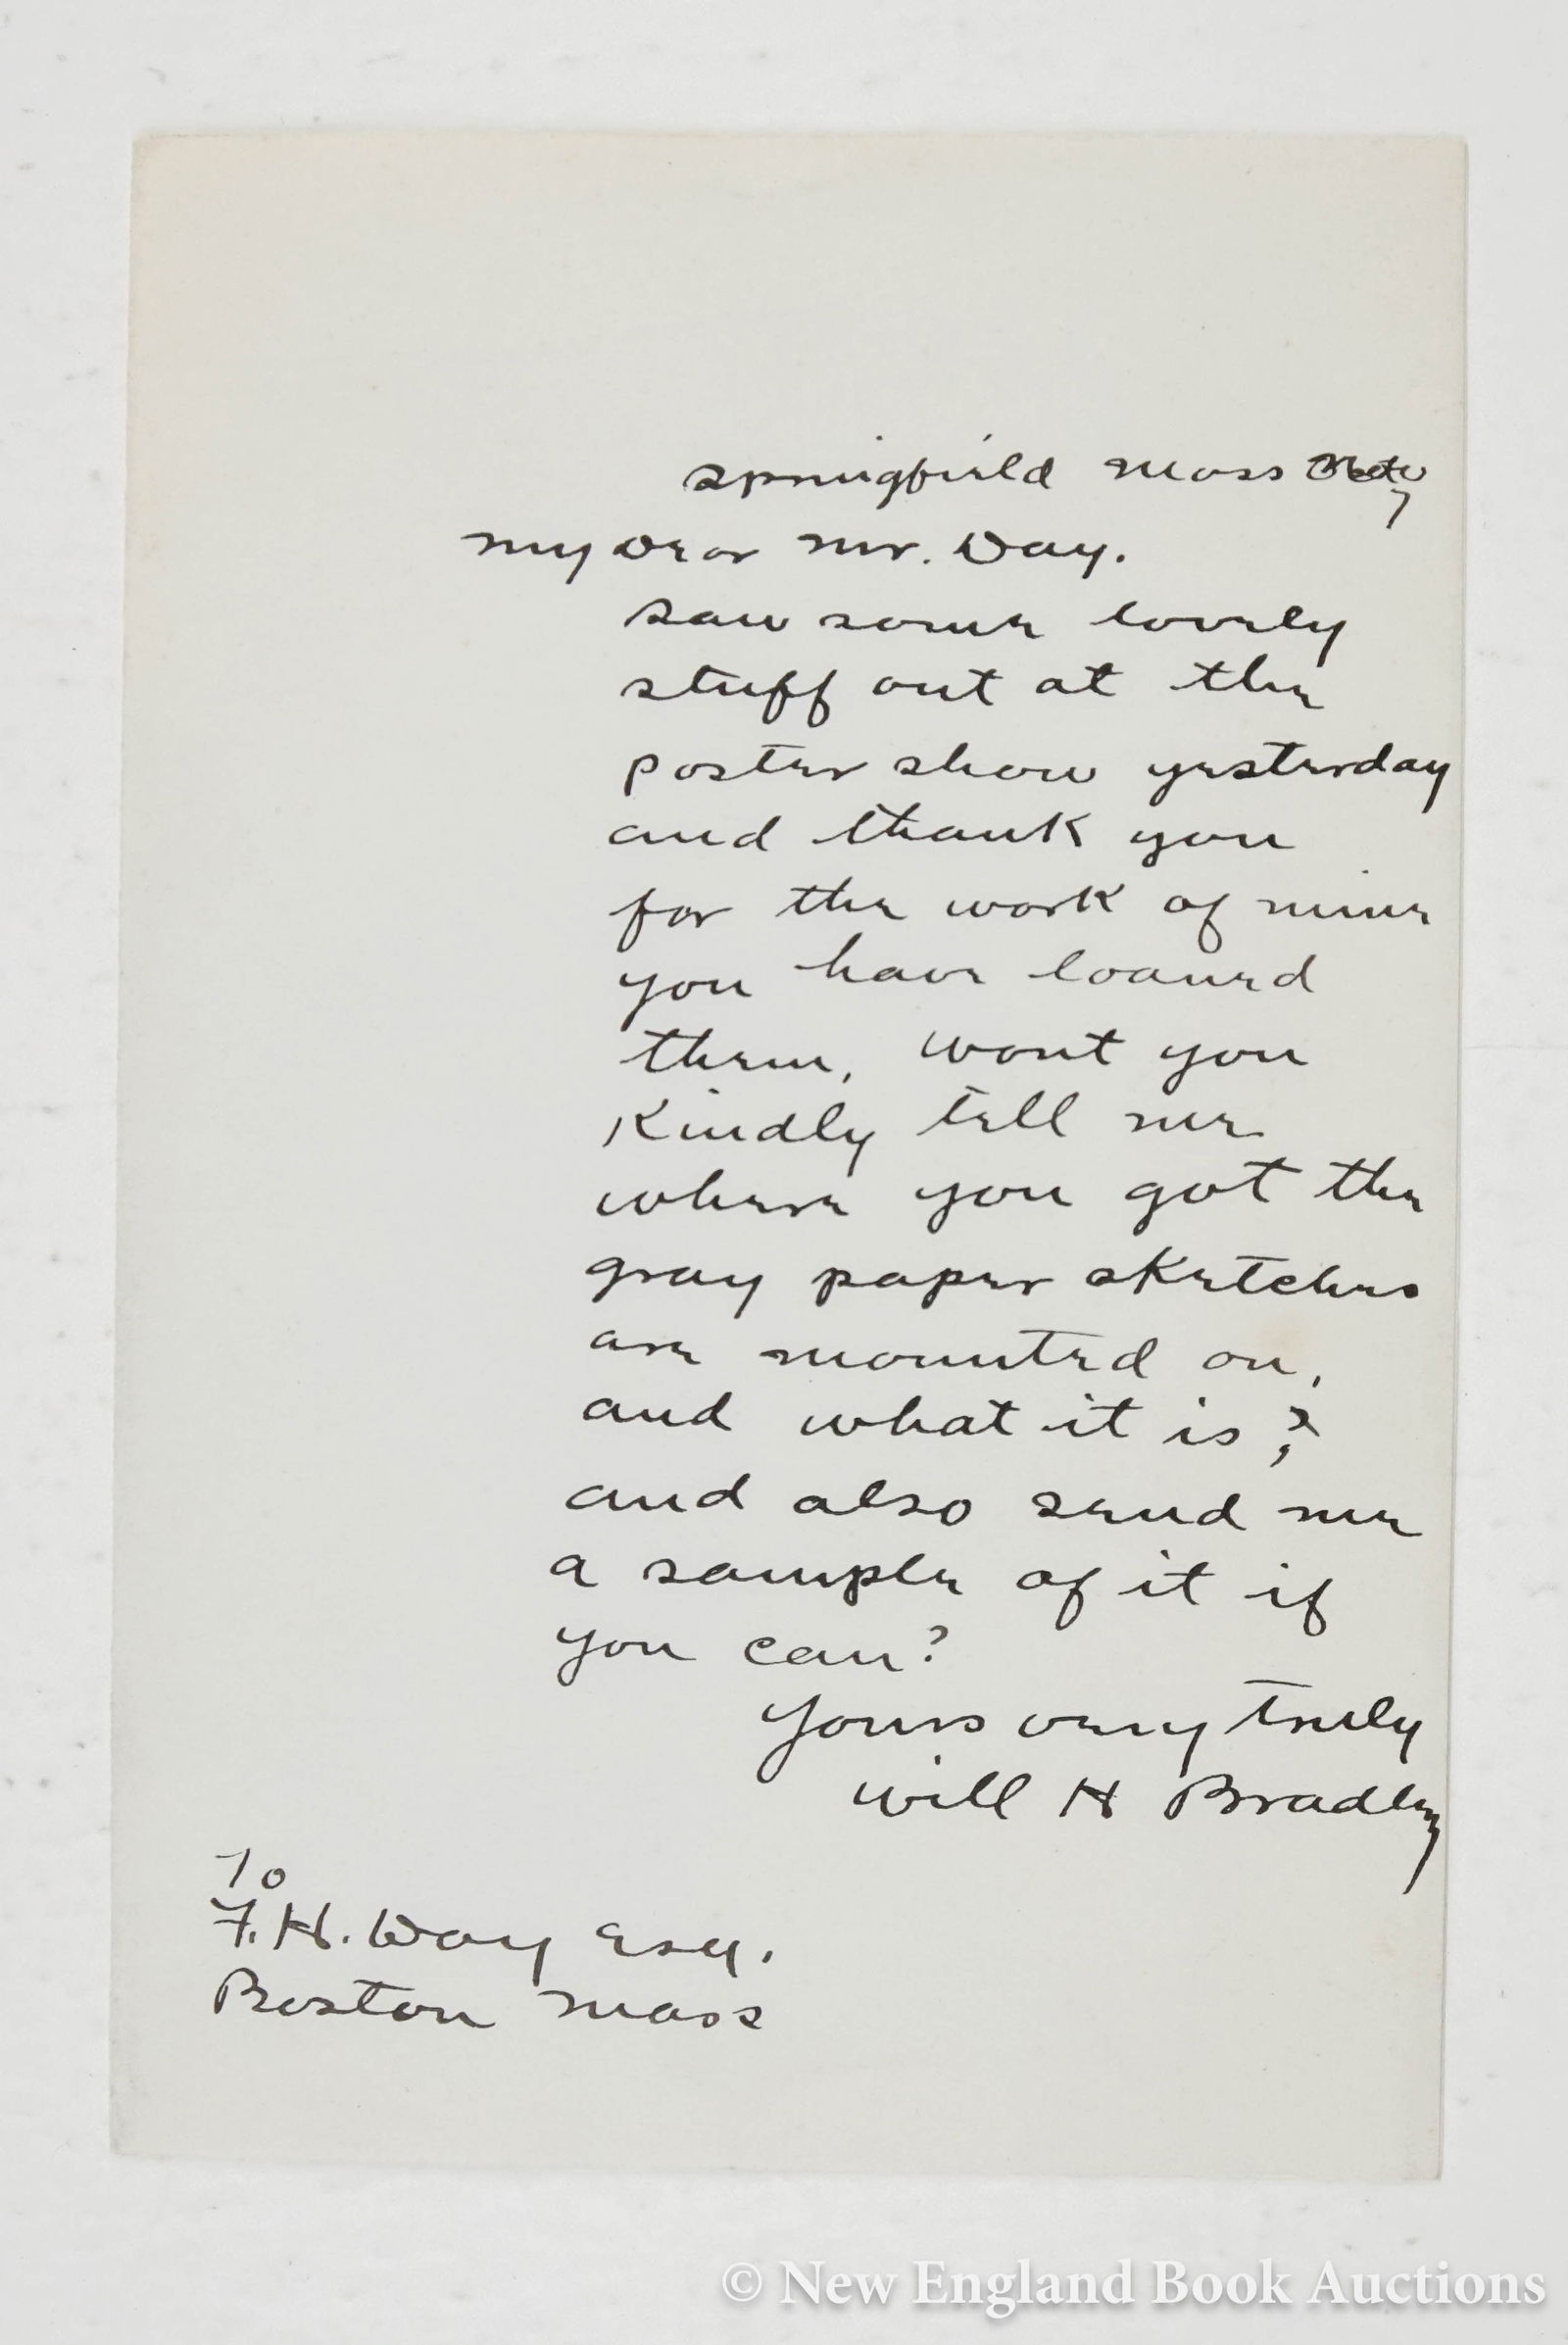 Springfield Mass
My Dear Mr. Day.
Saw some lovely
stuff out at the
poster show yesterday
and thank you
for the work of mine
you have loaned
them, wont you
Kindly tell me
where you got the
gray paper sketches
are mounted on,
and what it is?
and also send me
a sample of it if
you can?
Yours very truly
Will H Bradley
To
F. H. Day Esq.
Boston Mass
© New England Book Auctions